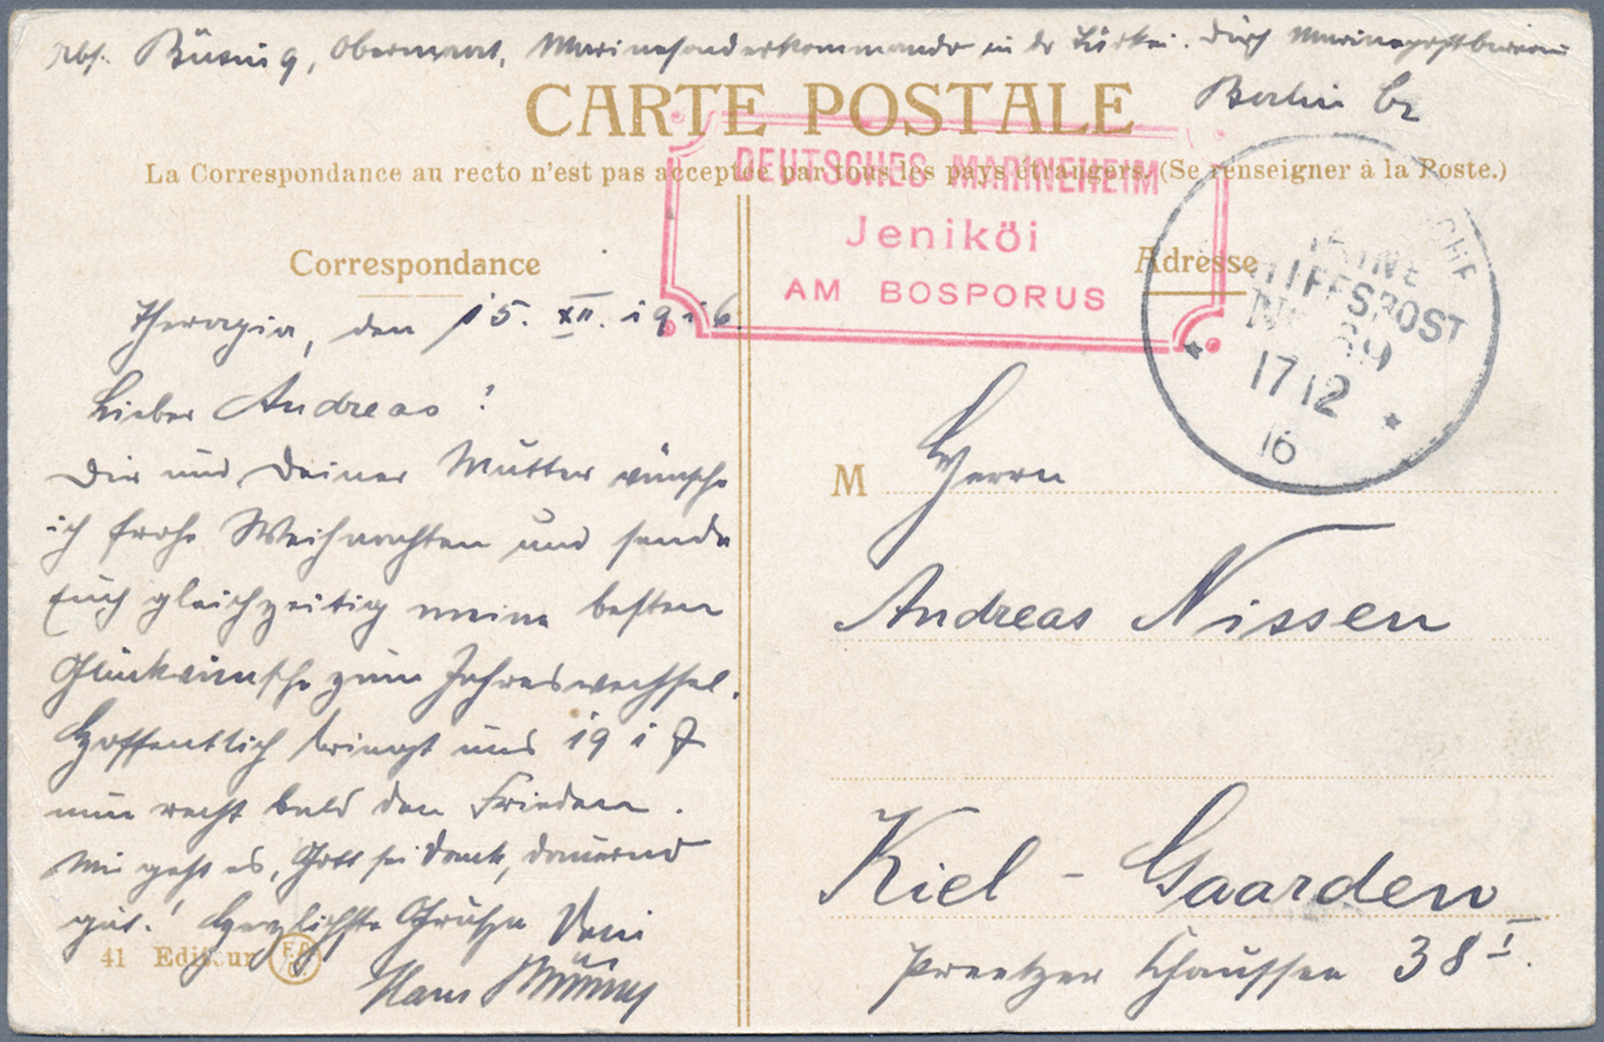 Abs. Büsing, Obermaat, Marinesonderkommando in der Türkei. Durch Marinepostbureau
Berlin C2
CARTE POSTALE
La Correspondance au recto n'est pas acceptée par tous les pays étrangers. (Se renseigner à la Poste.)
DEUTSCHES MARINEHEIM
Jeniköi
AM BOSPORUS
Correspondance
Adresse
SCHE
MARINE
SCHIFFSPOST
No 39
17 12
16
Therapia, den 15. XII. 1916.
Lieber Andreas!
Dir und Deiner Mutter wünsche
ich frohe Weihnachten und sende
Euch gleichzeitig meine besten
Glückwünsche zum Jahreswechsel.
Hoffentlich bringt uns 1917
nun recht bald den Frieden.
Mir geht es, Gott sei Dank, dauernd
gut! Herzlichste Grüße Dein
Hans Büsing
41 Editeur
M Herrn
Andreas Nissen
Kiel - Gaarden
Preetzer Chaussee 38 I.